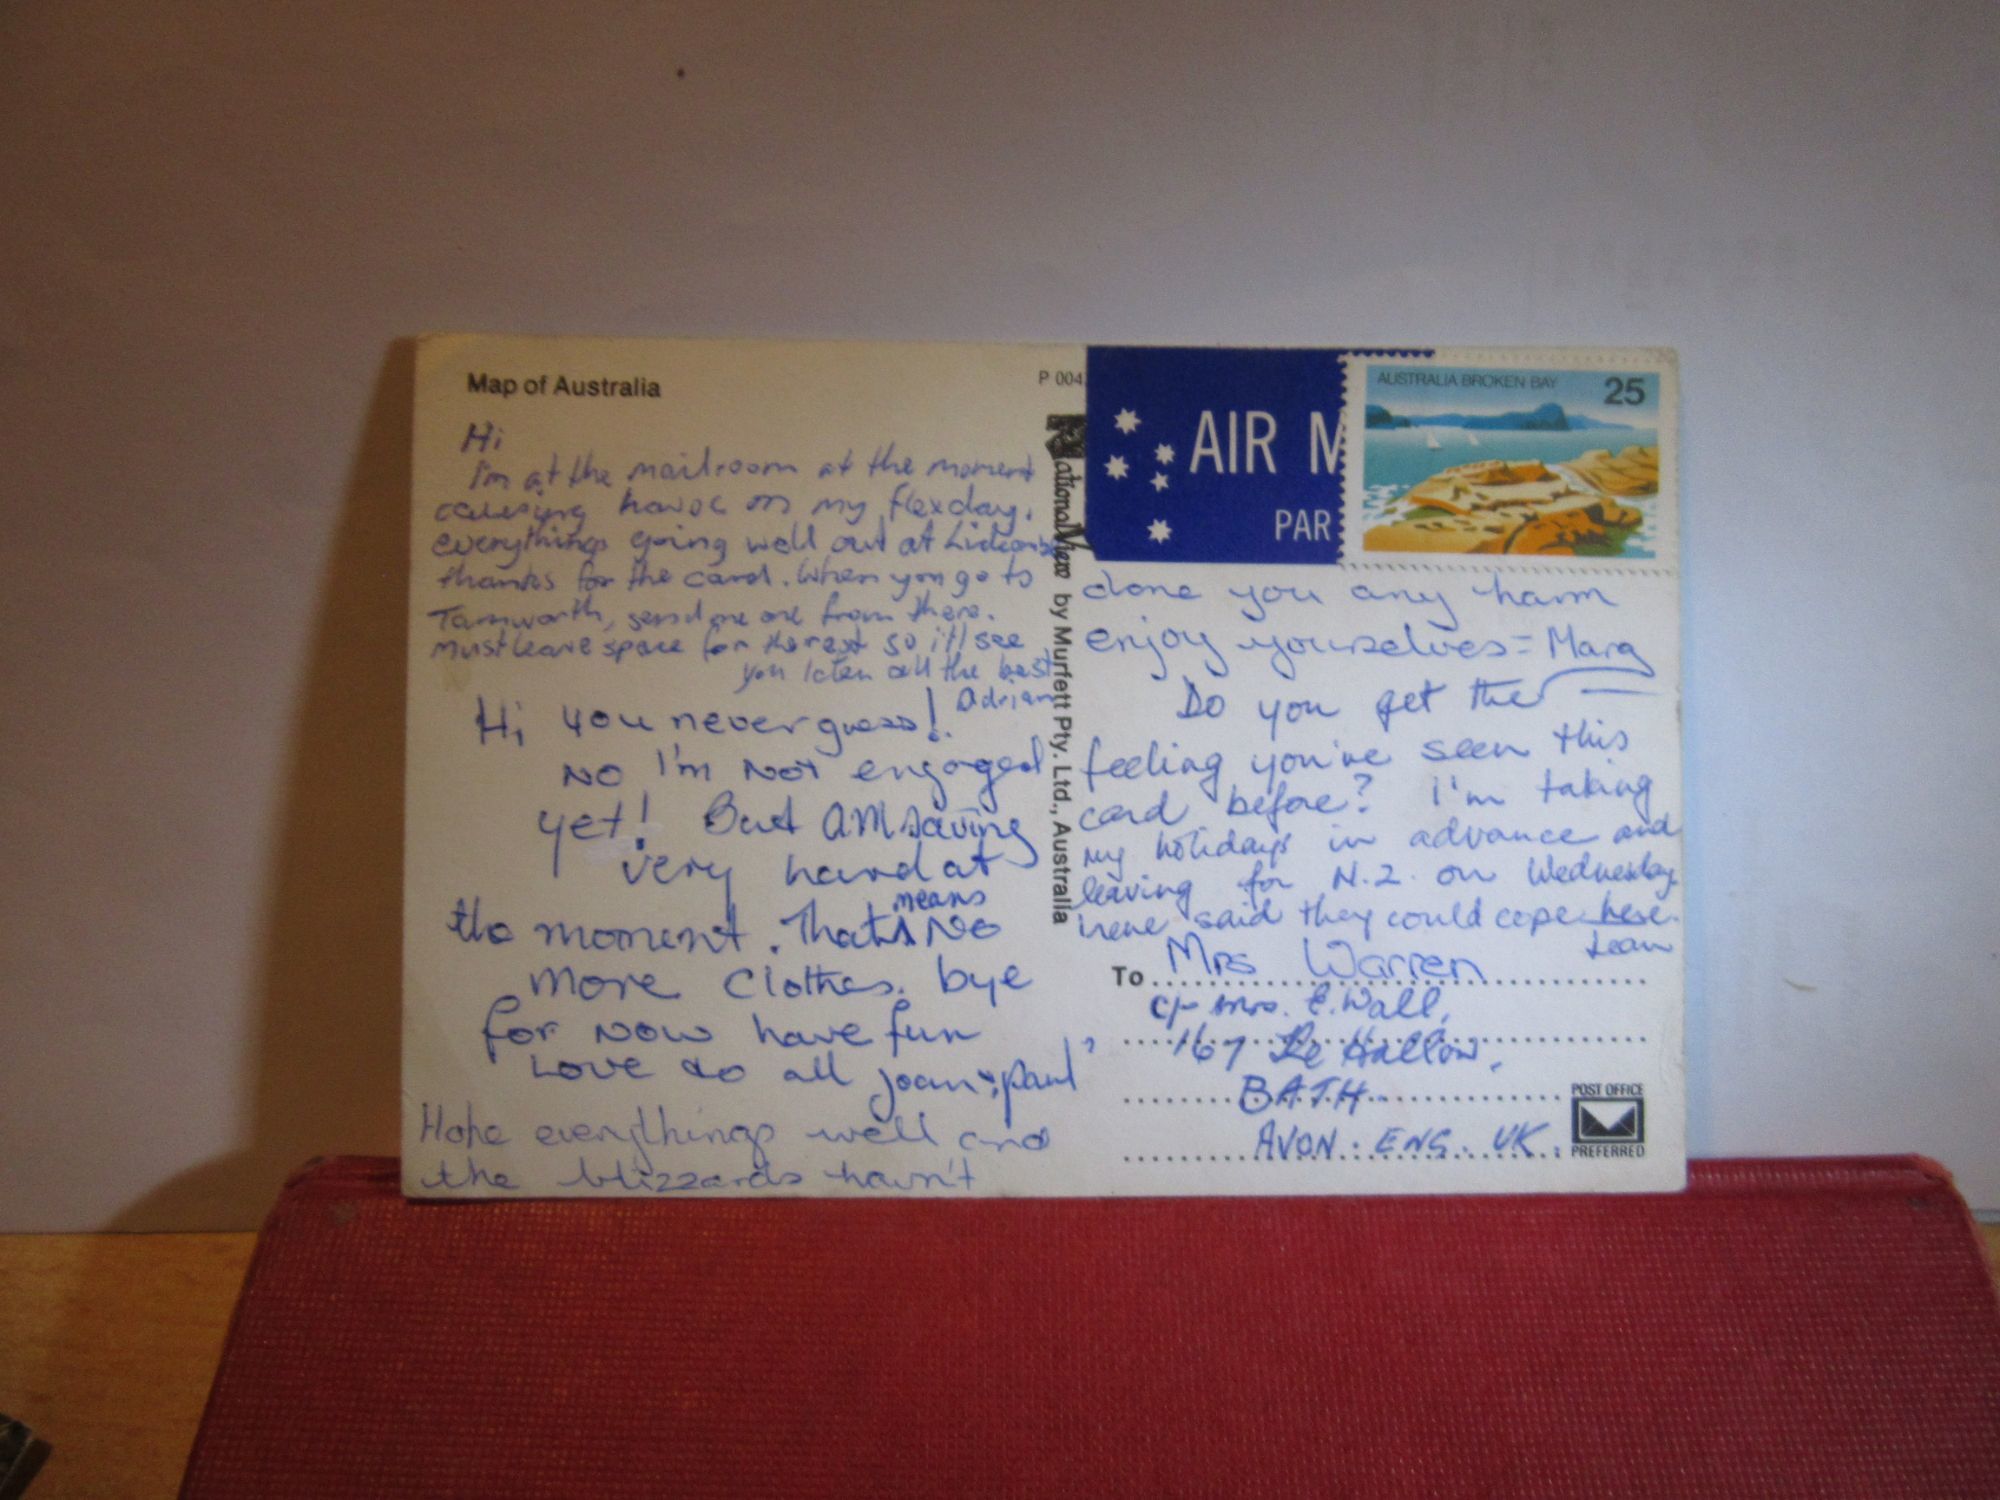 Map of Australia
P 004
Hi
I'm at the mailroom at the moment
causing havoc on my flexday.
everythings going well out at Lidcombe
thanks for the card. When you go to
Tamworth, send me one from there.
must leave space for the rest so i'll see
you later all the best
Adrian
Hi you never guess!
NO I'm NOT engaged
yet! But AM saving
very hard at
the moment. That means NO
more clothes. bye
for NOW have fun
Love to all Joan & Paul
Hope everythings well and
the blizzards havn't
NationalView by Murfett Pty. Ltd., Australia
AIR M
PAR
AUSTRALIA BROKEN BAY 25
done you any harm
enjoy yourselves = Marg
Do you get the
feeling you've seen this
card before? I'm taking
my holidays in advance and
leaving for N.Z. on Wednesday.
irene said they could cope here.
To Mrs Warren
c/- Mrs. E. Wall,
167 Hallow,
BATH
AVON. ENG. UK.
POST OFFICE
PREFERRED